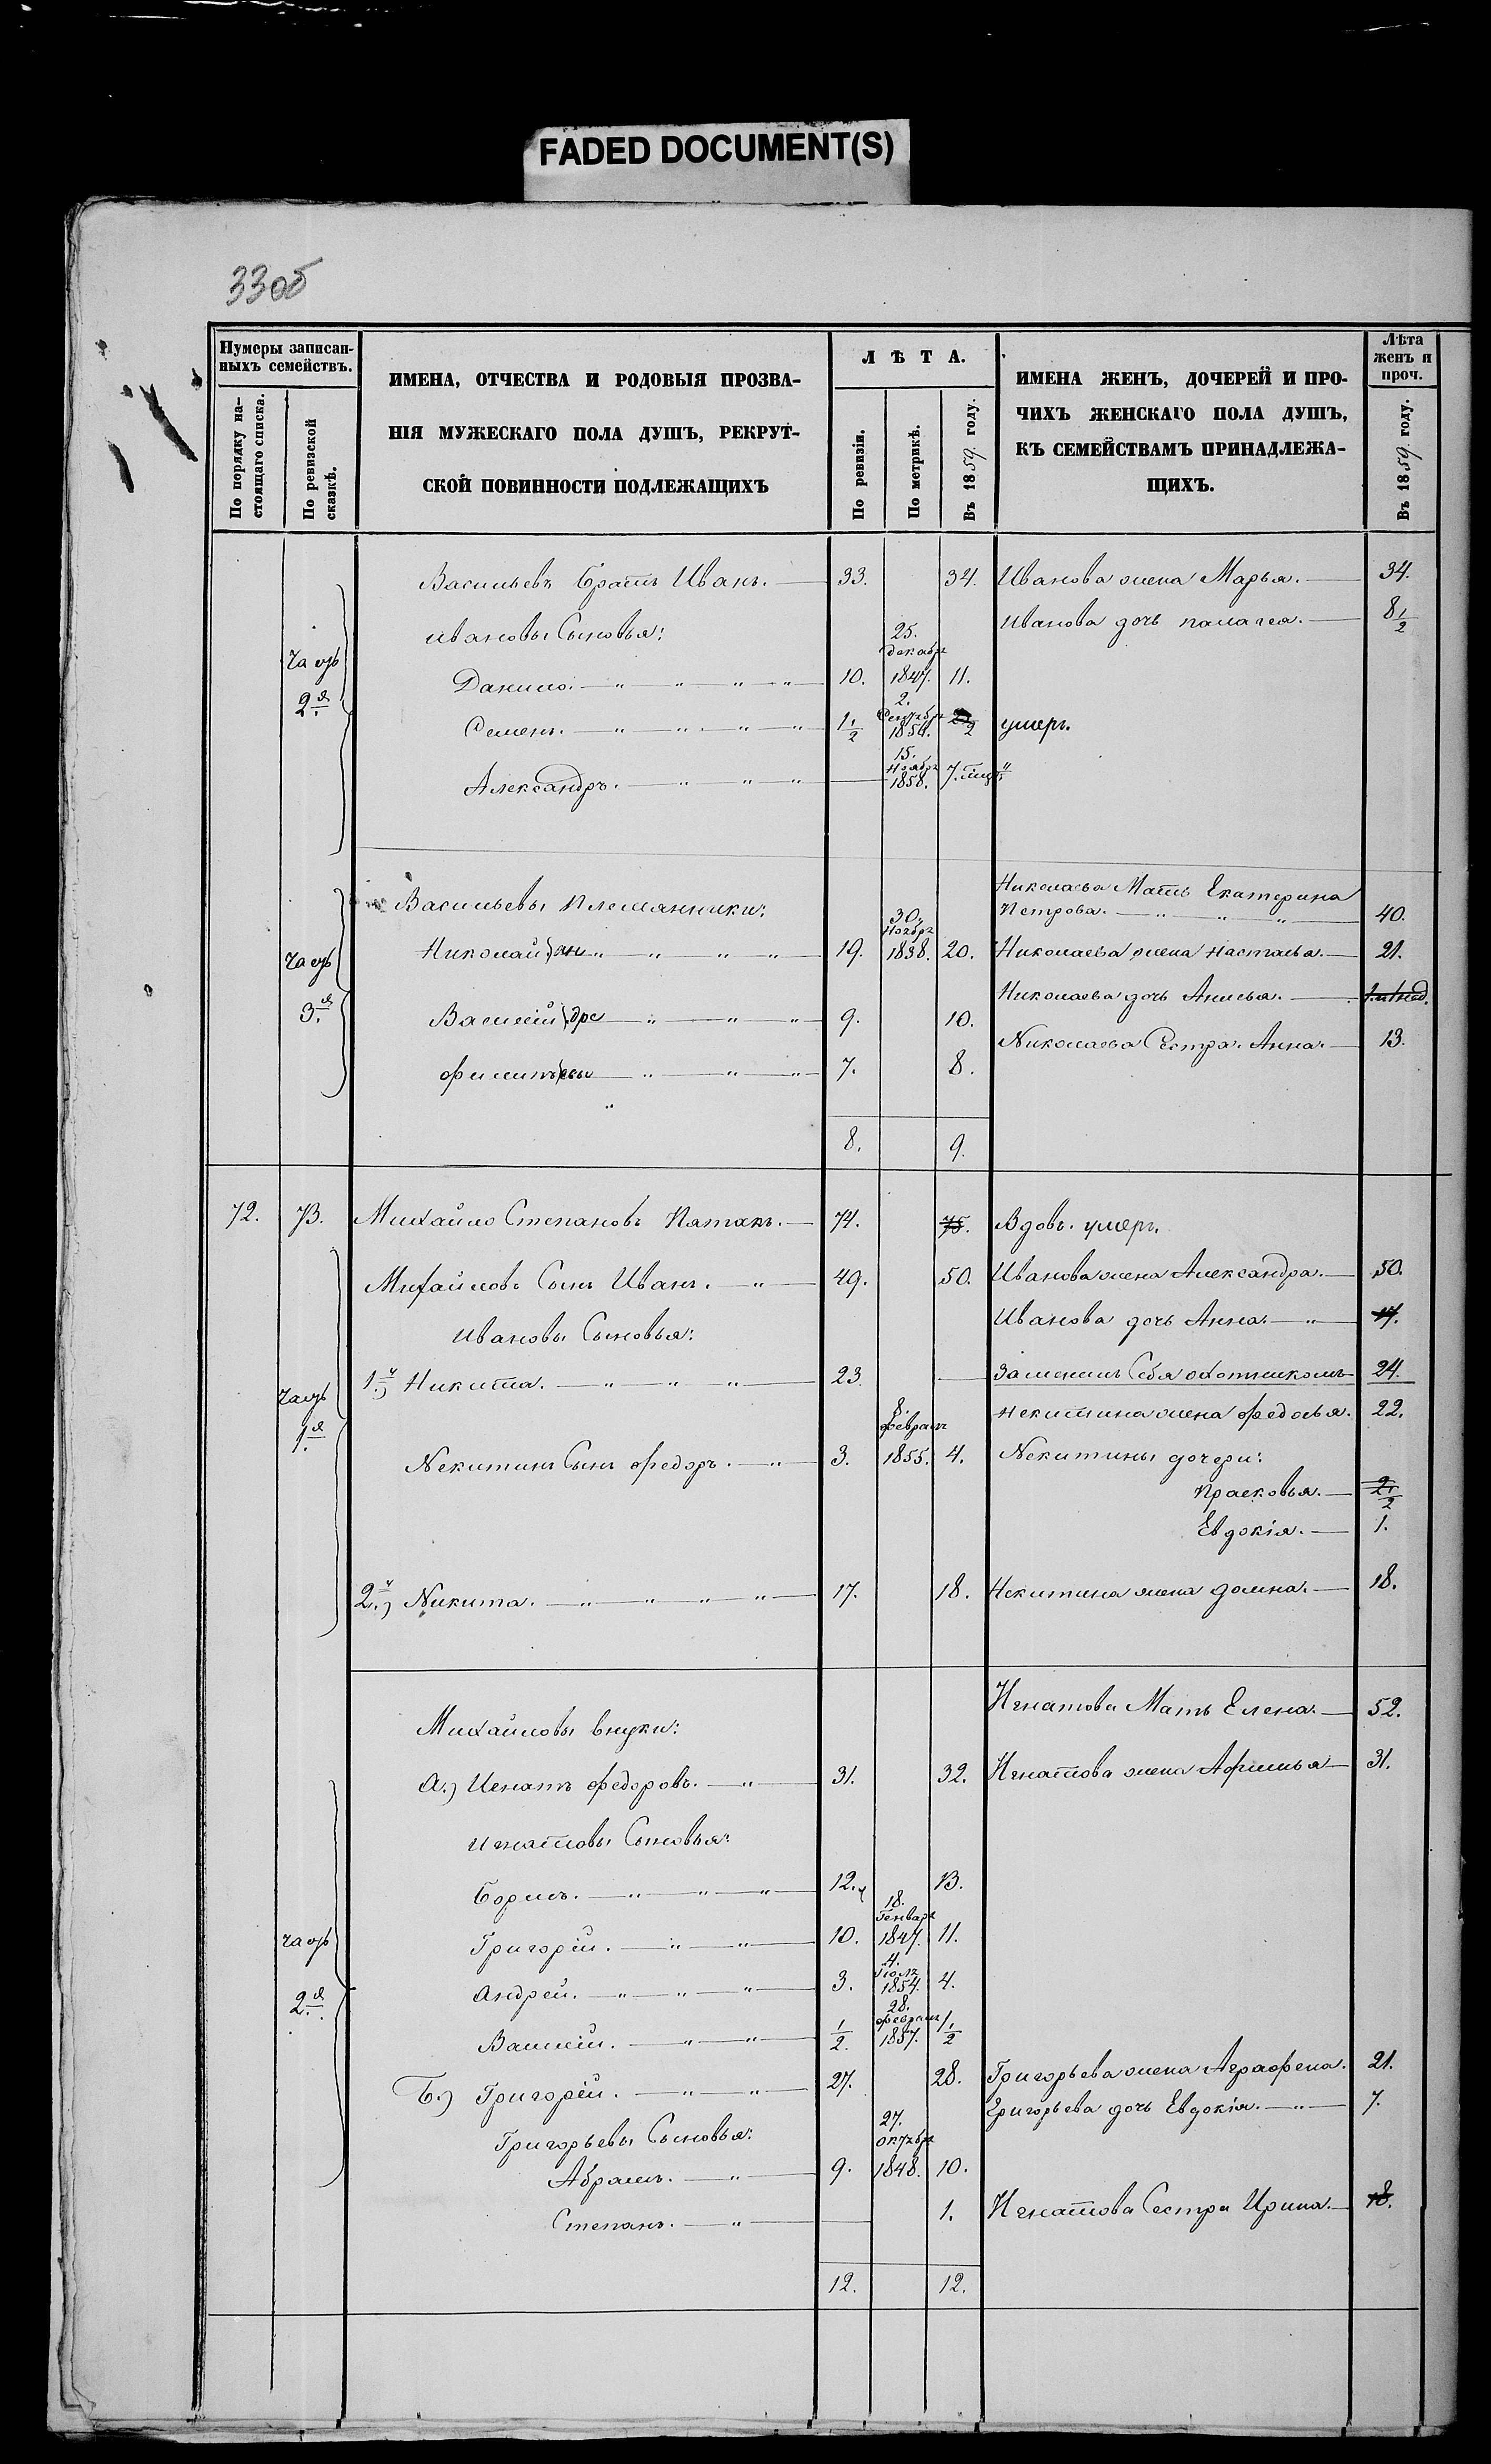 FADED DOCUMENT(S)
33об
Нумеры записан-
ныхъ семействъ.
По порядку на-
стоящаго списка.
По ревизской
сказкѣ.
ИМЕНА, ОТЧЕСТВА И РОДОВЫЯ ПРОЗВА-
НІЯ МУЖЕСКАГО ПОЛА ДУШЪ, РЕКРУТ-
СКОЙ ПОВИННОСТИ ПОДЛЕЖАЩИХЪ
ЛѢТА.
По ревизіи.
По метрикѣ.
Въ 1859 году.
ИМЕНА ЖЕНЪ, ДОЧЕРЕЙ И ПРО-
ЧИХЪ ЖЕНСКАГО ПОЛА ДУШЪ,
КЪ СЕМЕЙСТВАМЪ ПРИНАДЛЕЖА-
ЩИХЪ.
Лѣта
женъ и
проч.
Въ 1859 году.
Васильевъ братъ Иванъ. 33. 34. Иванова жена Марья. 34.
Ивановы Сыновья: Иванова дочь палагея. 8 1/2
часть
2я
25.
декабр
Данило. 10. 1847. 11.
2.
Сентябр
Семенъ. 1 1/2 1856. умеръ.
15.
Ноябр
Александръ. 1858. 7. мщ.
Васильевы племянники: Николаева Мать Екатерина
Петрова. 40.
часть
3я
30.
Ноябр
Николай 19. 1838. 20. Николаева жена Настасья. 21.
Николаева дочь Анисья. 1. и 1 нед.
Василій 9. 10.
Николаева Сестра Анна. 13.
Филипъ 7. 8.
8. 9.
72. 73. Михайло Степановъ Пятакъ. 74. 75. Вдовъ. умеръ.
Михайловъ Сынъ Иванъ. 49. 50. Иванова жена Александра. 50.
Ивановы Сыновья: Иванова дочь Анна. 17.
часть
1я
1й) Никита. 23. Заменилъ Себя охотникомъ 24.
Некитина жена Федосья. 22.
8.
Февраля
Некитинъ Сынъ Федоръ. 3. 1855. 4. Некитины дочери:
Прасковья. 2 1/2
Евдокія. 1.
2й) Никита. 17. 18. Некитина жена Домна. 18.
Игнатова Мать Елена. 52.
Михайловы внуки:
А.) Игнатъ Федоровъ. 31. 32. Игнатова жена Афимья 31.
Игнатовы Сыновья:
Борисъ. 12. 13.
часть
2я
18.
Генваря
Григорій. 10. 1847. 11.
4.
Іюля
Андрей. 3. 1854. 4.
28.
Февраля
Василій. 1/2. 1857. 1 1/2
Б.) Григорій. 27. 28. Григорьева жена Аграфена. 21.
Григорьева дочь Евдокія. 7.
Григорьевы Сыновья:
27.
Октябр
Абрамъ. 9. 1848. 10.
Степанъ. 1. Игнатова Сестра Ирина. 18.
12. 12.